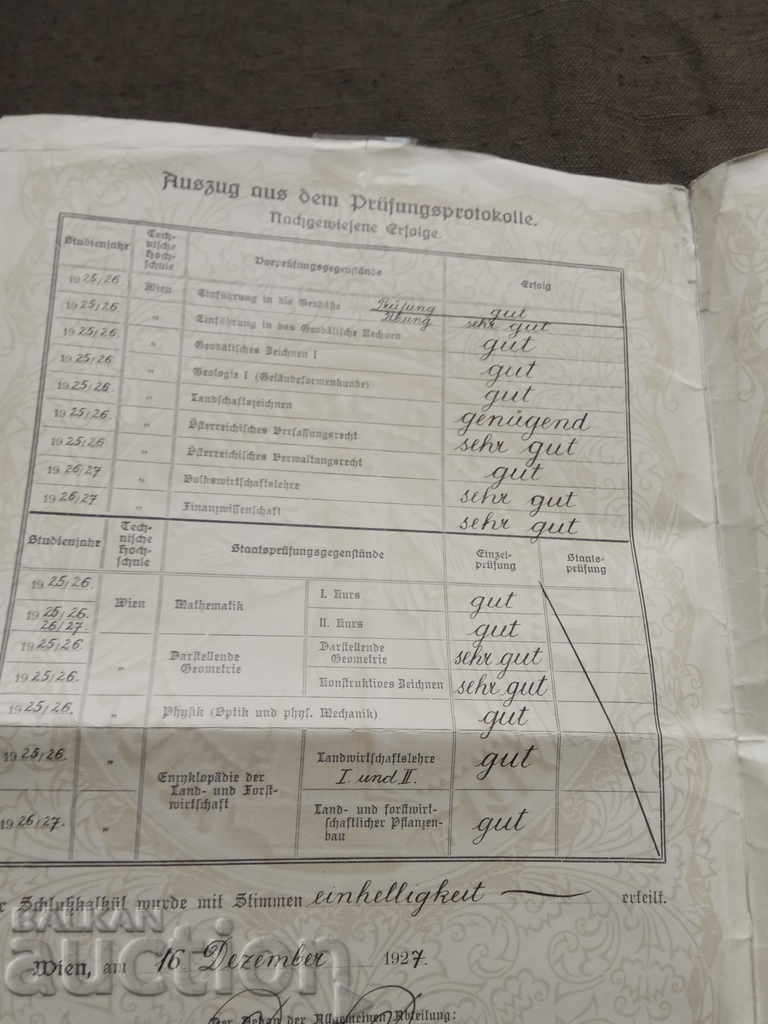 Auszug aus dem Prüfungsprotokolle.
Nachgewiesene Erfolge.
Studienjahr Technische Hochschule Vorprüfungsgegenstände Erfolg
1925/26 Wien Einführung in die Geodäsie Prüfung gut
Übung sehr gut
1925/26 „ Einführung in das Geodätische Rechnen gut
1925/26 „ Geodätisches Zeichnen I gut
1925/26 „ Geologie I (Geländeformenkunde) gut
1925/26 „ Landschaftszeichnen genügend
1925/26 „ Österreichisches Verfassungsrecht sehr gut
1925/26 „ Österreichisches Verwaltungsrecht gut
1926/27 „ Volkswirtschaftslehre sehr gut
1926/27 „ Finanzwissenschaft sehr gut
Studienjahr Tech-
nische
Hoch-
schule Staatsprüfungsgegenstände Einzel-
prüfung Staats-
prüfung
1925/26. Wien Mathematik I. Kurs gut
1925/26.
26/27. II. Kurs gut
1925/26. „ Darstellende
Geometrie Darstellende
Geometrie sehr gut
1925/26. Konstruktives Zeichnen sehr gut
1925/26. „ Physik (Optik und phys. Mechanik) gut
1925/26. „ Enzyklopädie der
Land- und Forst-
wirtschaft Landwirtschaftslehre
I. und II. gut
1926/27. „ Land- und forstwirt-
schaftlicher Pflanzen-
bau gut
Schlußkalkül wurde mit Stimmen einhelligkeit erteilt.
Wien, am 16. Dezember 1927.
Der Dekan der Allgemeinen Abteilung:
BALKAN
auction